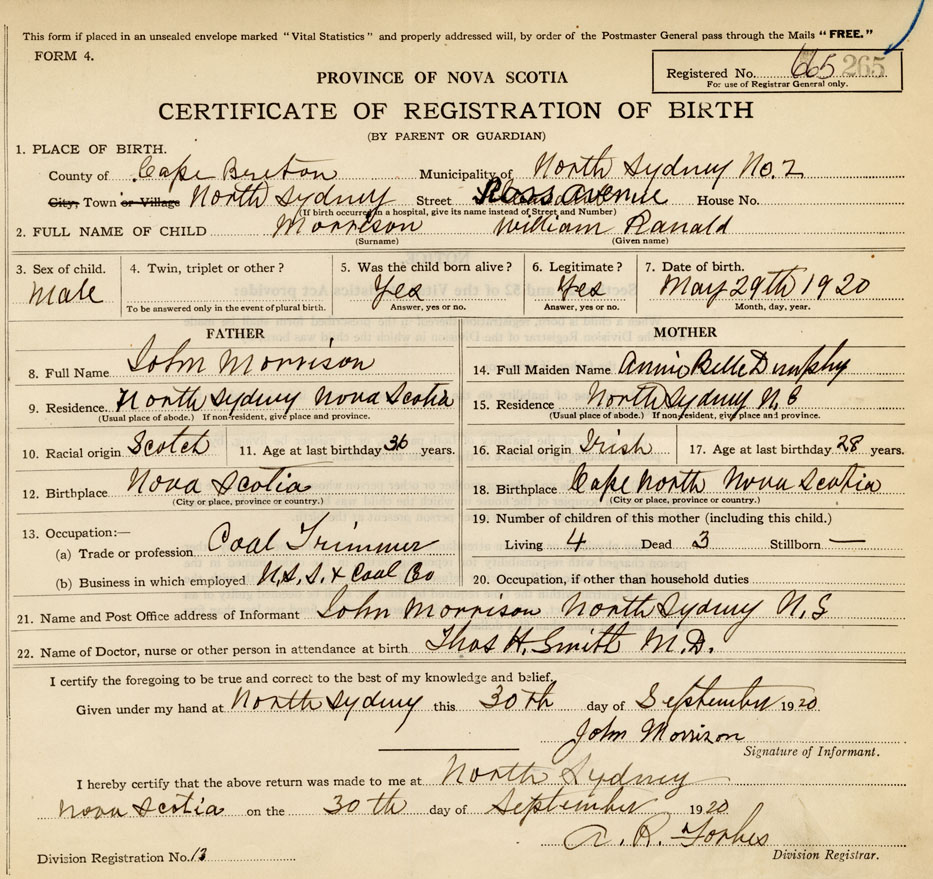 This form if placed in an unsealed envelope marked "Vital Statistics" and properly addressed will, by order of the Postmaster General pass through the Mails "FREE."
FORM 4.
Registered No. 665 265
For use of Registrar General only.
PROVINCE OF NOVA SCOTIA
CERTIFICATE OF REGISTRATION OF BIRTH
(BY PARENT OR GUARDIAN)
1. PLACE OF BIRTH.
County of Cape Breton Municipality of North Sydney No. 2
City, Town or Village North Sydney Street Ross avenue House No.
(If birth occurred in a hospital, give its name instead of Street and Number)
2. FULL NAME OF CHILD Morrison William Ranald
(Surname) (Given name)
3. Sex of child. Male
4. Twin, triplet or other?
To be answered only in the event of plural birth.
5. Was the child born alive?
Yes
Answer, yes or no.
6. Legitimate?
Yes
Answer, yes or no.
7. Date of birth.
May 29th 1920
Month, day, year.
FATHER
8. Full Name John Morrison
9. Residence. North Sydney Nova Scotia
(Usual place of abode.) If non-resident, give place and province.
10. Racial origin Scotch 11. Age at last birthday 36 years.
12. Birthplace Nova Scotia
(City or place, province or country.)
13. Occupation:—
(a) Trade or profession Coal Trimmer
(b) Business in which employed N.S.S. & Coal Co
MOTHER
14. Full Maiden Name Annie Belle Dumphy
15. Residence North Sydney N.S
(Usual place of abode.) If non-resident, give place and province.
16. Racial origin Irish 17. Age at last birthday 28 years.
18. Birthplace Cape North Nova Scotia
(City or place, province or country.)
19. Number of children of this mother (including this child.)
Living 4 Dead 3 Stillborn —
20. Occupation, if other than household duties
21. Name and Post Office address of Informant John Morrison North Sydney N.S
22. Name of Doctor, nurse or other person in attendance at birth Thos H. Smith M.D.
I certify the foregoing to be true and correct to the best of my knowledge and belief.
Given under my hand at North Sydney this 30th day of September 1920
John Morrison
Signature of Informant.
I hereby certify that the above return was made to me at North Sydney
Nova Scotia on the 30th day of September 1920
A. R. Forbes
Division Registration No. 13 Division Registrar.